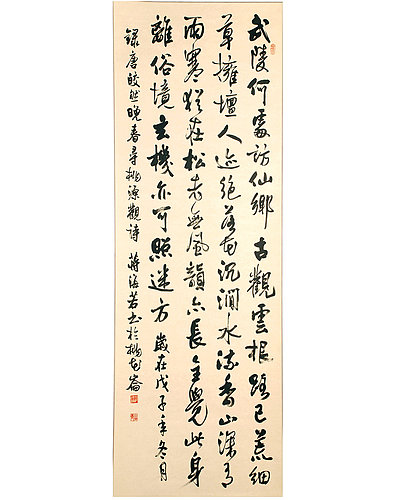 武陵何處訪仙鄉古觀雲根路已荒細
草擁壇人迹絕落花沉澗水流香山深有
雨寒猶在松老無風韻亦長全覺此身
離俗境玄機亦可照迷方 歲在戊子年冬月
錄唐皎然晚春尋桃源觀詩 蔣若書於桃花崙